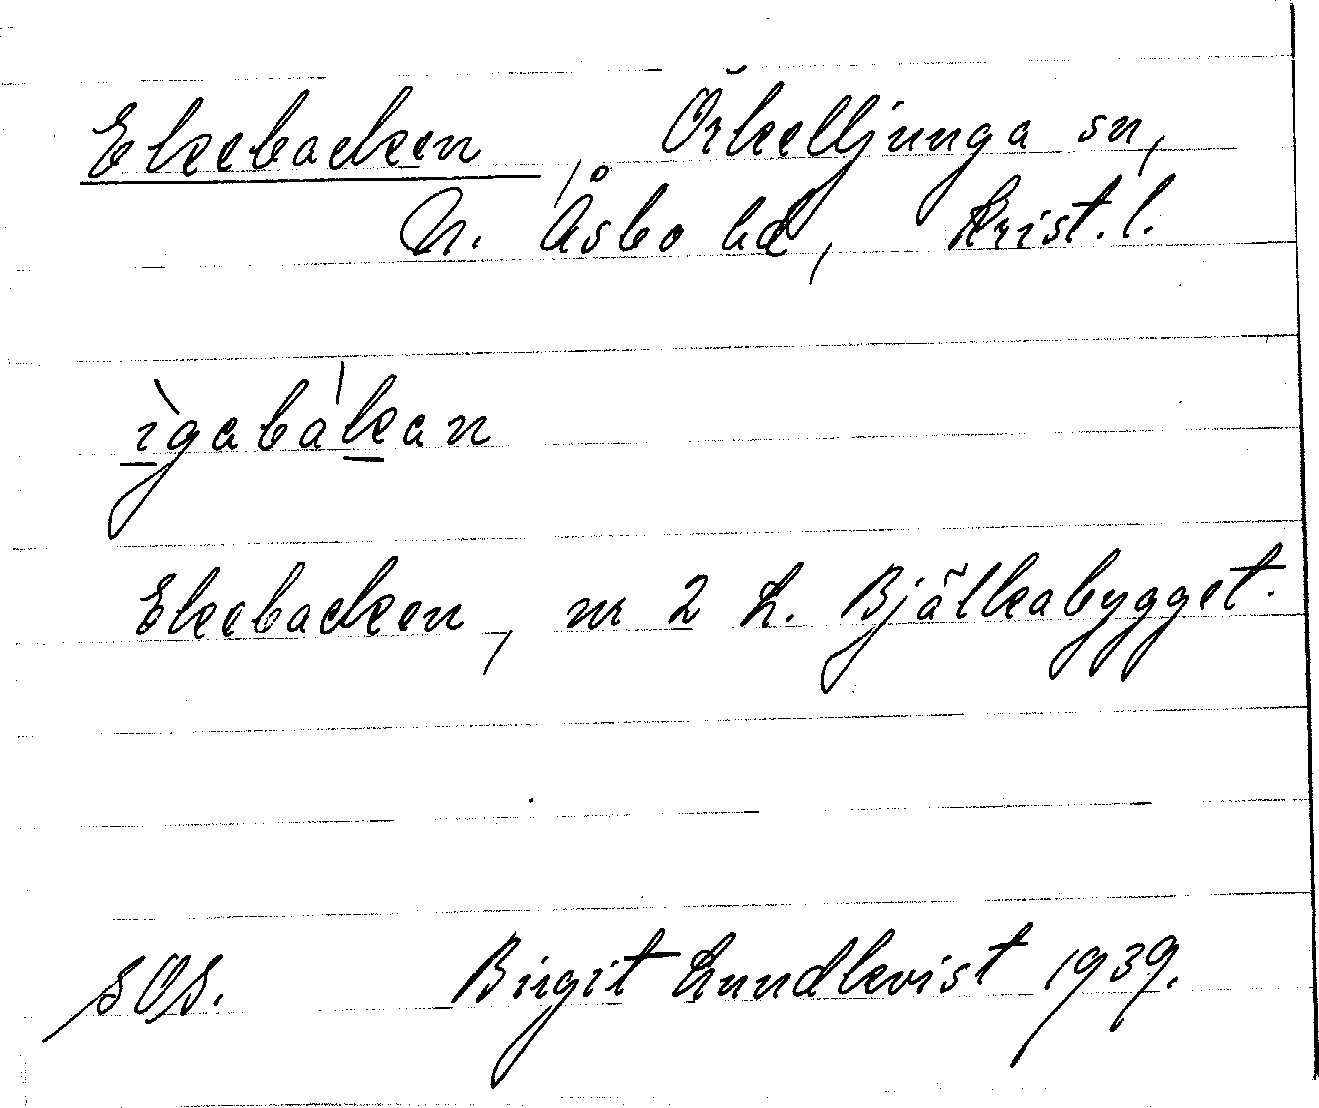 Ekebacken, Örkelljunga sn,
N. Åsbo hd, Krist. l.
ìgabákan
Ekebacken, nr 2 L. Bjälkabygget.
SOS. Birgit Lundkvist 1939.